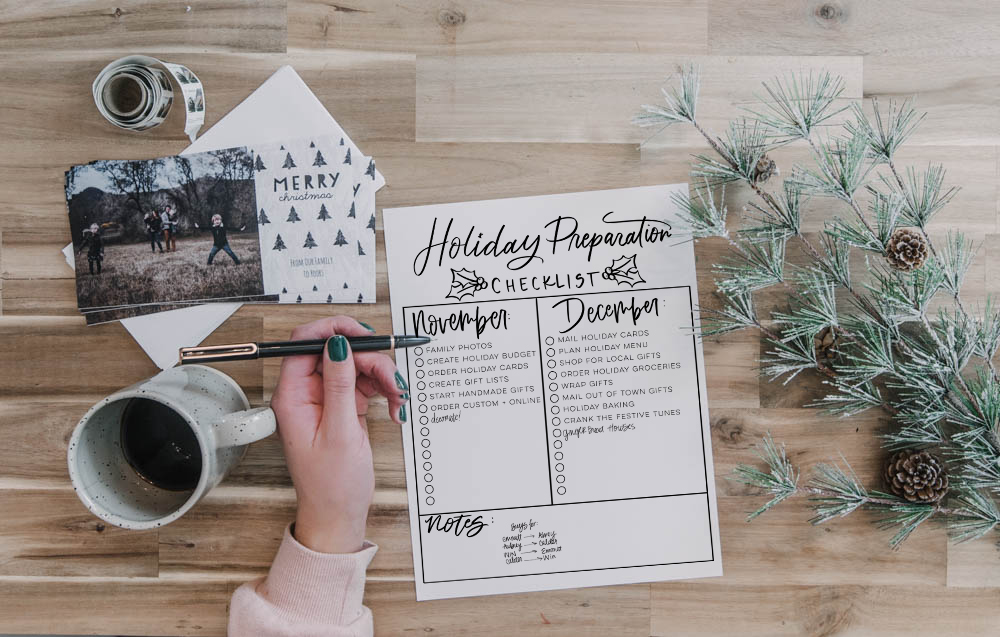 MERRY
christmas
FROM OUR FAMILY
TO YOURS
Holiday Preparation
CHECKLIST
November:
FAMILY PHOTOS
CREATE HOLIDAY BUDGET
ORDER HOLIDAY CARDS
CREATE GIFT LISTS
START HANDMADE GIFTS
ORDER CUSTOM + ONLINE
decorate!
December:
MAIL HOLIDAY CARDS
PLAN HOLIDAY MENU
SHOP FOR LOCAL GIFTS
ORDER HOLIDAY GROCERIES
WRAP GIFTS
MAIL OUT OF TOWN GIFTS
HOLIDAY BAKING
CRANK THE FESTIVE TUNES
gingerbread Houses
Notes:
buys for:
Emmett → Abrey
Aubrey → Calder
Win → Emmett
Calder → Win